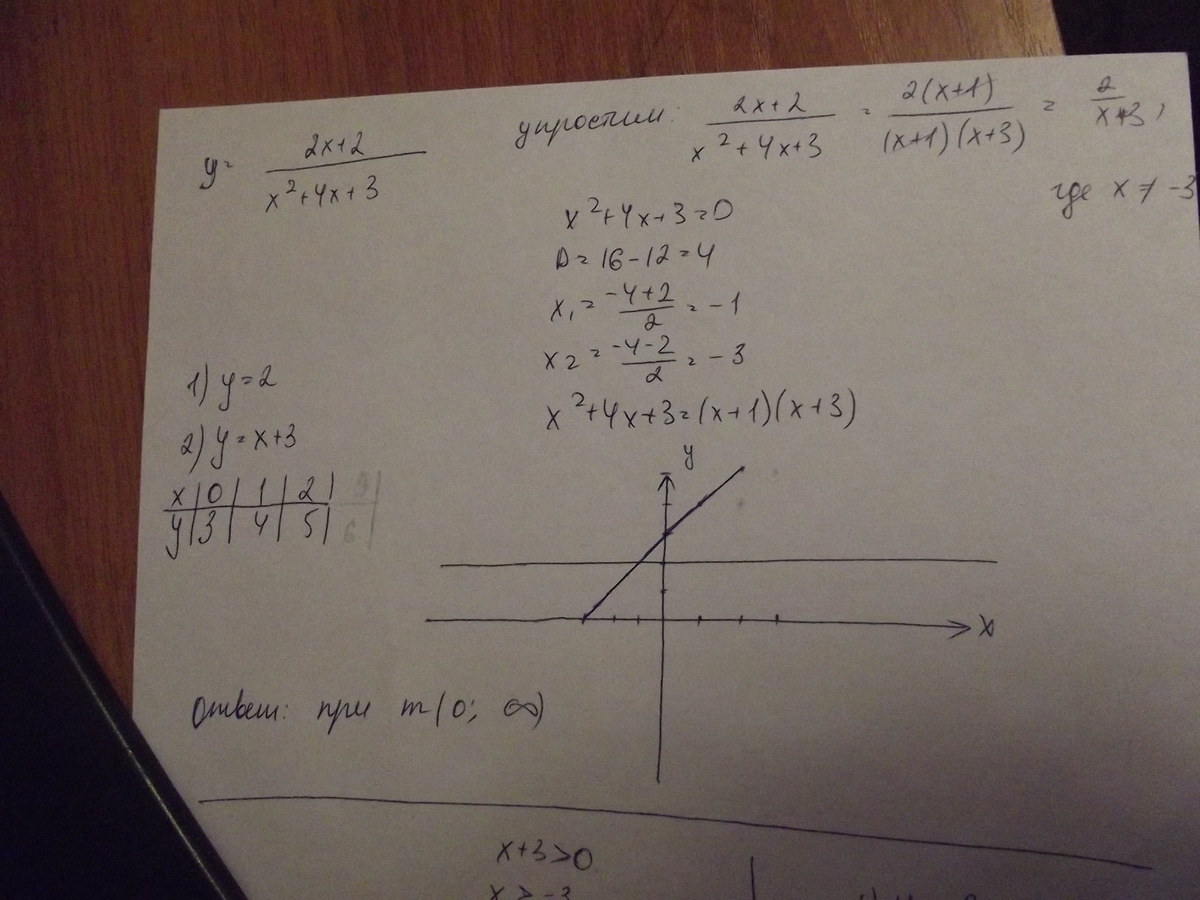 y = (2x+2)/(x²+4x+3)
упростим: (2x+2)/(x²+4x+3) = 2(x+1)/((x+1)(x+3)) = 2/(x+3),
где x ≠ -3
x²+4x+3=0
D = 16-12=4
x₁ = (-4+2)/2 = -1
x₂ = (-4-2)/2 = -3
x²+4x+3=(x+1)(x+3)
1) y=2
2) y=x+3
x | 0 | 1 | 2 |
y | 3 | 4 | 5 |
y
x
Ответ: при m(0; ∞)
x+3>0
x > -3